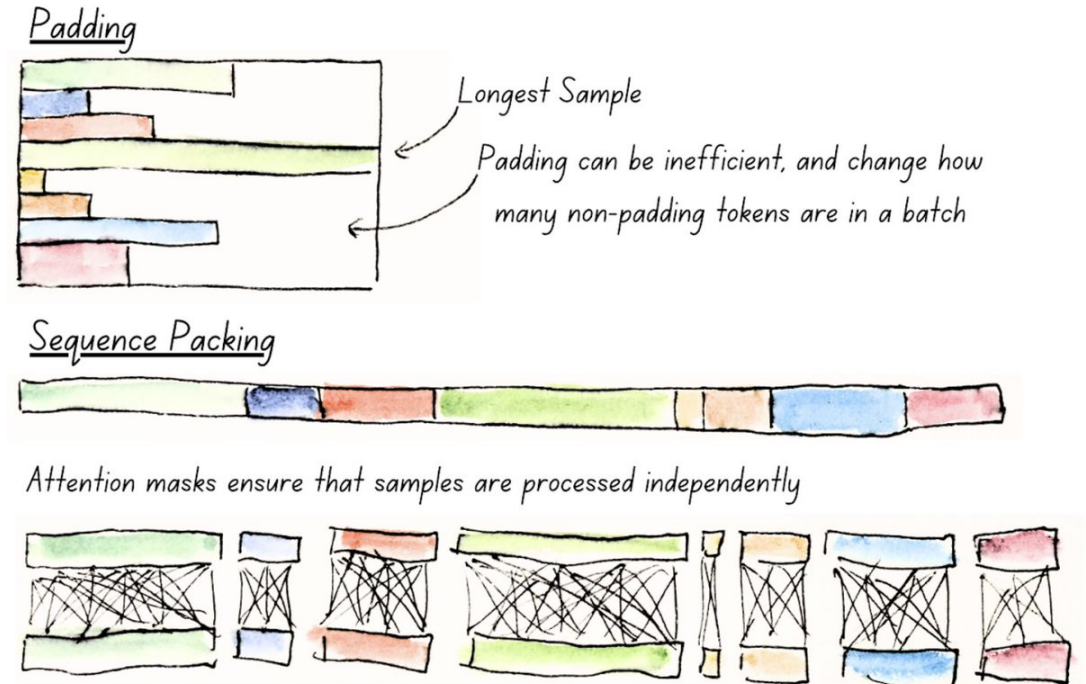 Padding
Longest Sample
Padding can be inefficient, and change how
many non-padding tokens are in a batch
Sequence Packing
Attention masks ensure that samples are processed independently